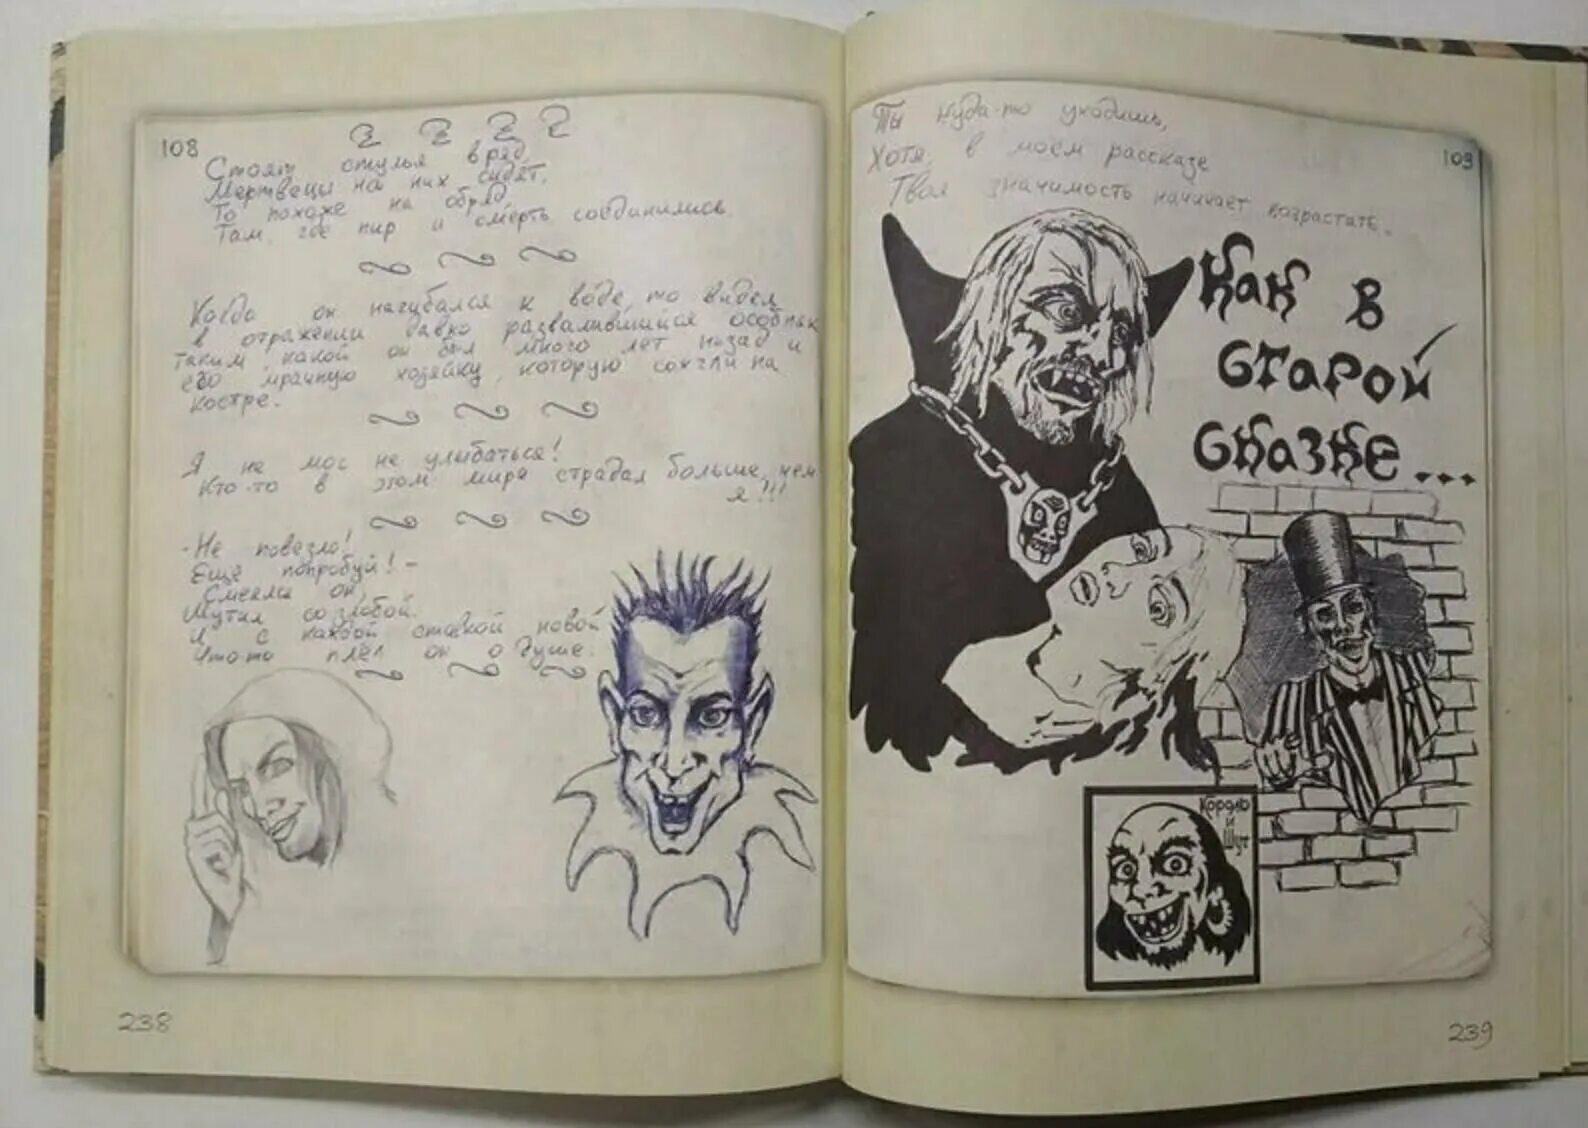 108
Стоят стулья в ряд,
Мертвецы на них сидят.
То похоже на обряд
Там, где пир и смерть соединились.
Когда он нагибался к воде, то видел
в отражении давно развалившийся особняк
таким, какой он был много лет назад и
его мрачную хозяйку, которую сожгли на
костре.
Я не мог не улыбаться!
Кто-то в этом мире страдал больше, чем
я!!!
- Не повезло!
Ещё попробуй! -
Смеялся он,
Шутил со злобой.
И с каждой ставкой новой
Что-то плёл он о душе.
238
Ты куда-то уходишь,
109
Хотя, в моём рассказе
Твоя значимость начинает возрастать.
Как в
Старой
Сказке...
Король
и
Шут
239